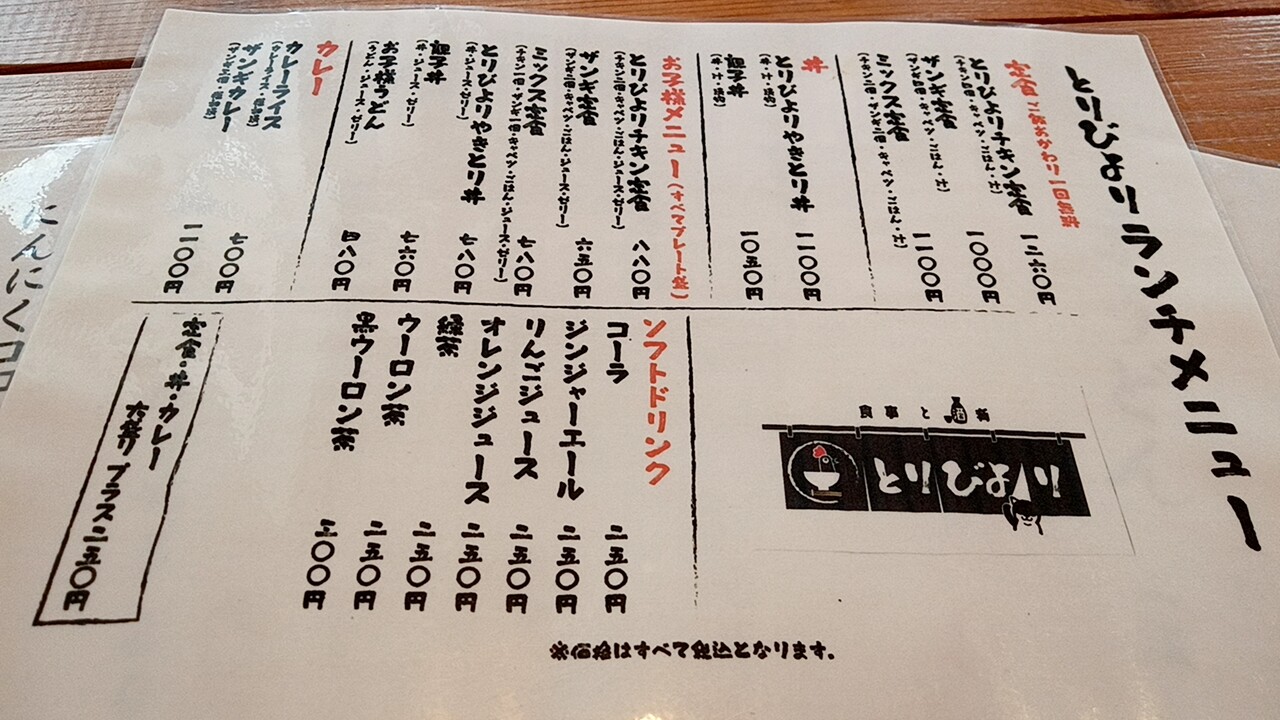 とりびよりランチメニュー
定食 ご飯おかわり一回無料
とりびよりチキン定食 一二六〇円
(チキン二個・キャベツ・ごはん・汁)
ザンギ定食 一〇〇〇円
(ザンギ三個・キャベツ・ごはん・汁)
ミックス定食 一一〇〇円
(チキン一個・ザンギ二個・キャベツ・ごはん・汁)
丼
とりびよりやきとり丼 一一〇〇円
(丼・汁・漬物)
親子丼 一〇五〇円
(丼・汁・漬物)
お子様メニュー(すべてプレート盛)
とりびよりチキン定食 八八〇円
(チキン一個・キャベツ・ごはん・ジュース・ゼリー)
ザンギ定食 六五〇円
(ザンギ二個・キャベツ・ごはん・ジュース・ゼリー)
ミックス定食 七八〇円
(チキン一個・ザンギ一個・キャベツ・ごはん・ジュース・ゼリー)
とりびよりやきとり丼 七八〇円
(丼・ジュース・ゼリー)
親子丼 七六〇円
(丼・ジュース・ゼリー)
お子様うどん 四八〇円
(うどん・ジュース・ゼリー)
カレー
カレーライス 七〇〇円
ザンギカレー 一一〇〇円
食事と酒肴
とりびより
ソフトドリンク
コーラ 二五〇円
ジンジャーエール 二五〇円
りんごジュース 二五〇円
オレンジジュース 二五〇円
緑茶 二五〇円
ウーロン茶 二五〇円
黒ウーロン茶 三〇〇円
定食・丼・カレー
大盛り プラス二五〇円
※価格はすべて税込となります。
にんにく